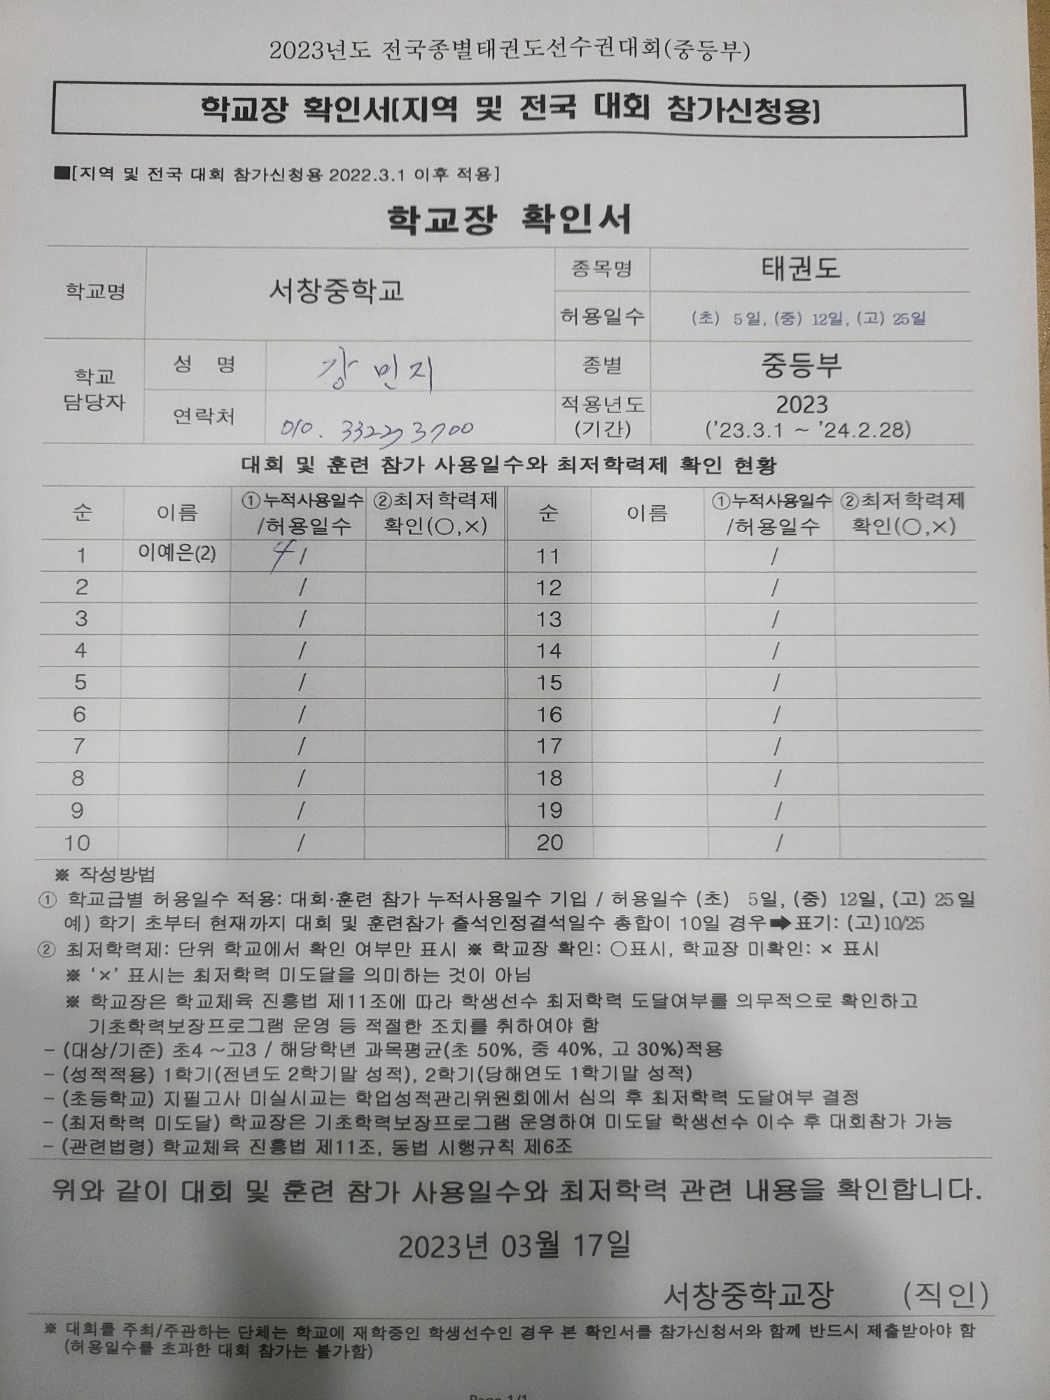 2023년도 전국종별태권도선수권대회(중등부)
학교장 확인서(지역 및 전국 대회 참가신청용)
■[지역 및 전국 대회 참가신청용 2022.3.1 이후 적용]
학교장 확인서
학교명 서창중학교 종목명 태권도
허용일수 (초) 5일, (중) 12일, (고) 25일
학교 담당자 성 명 강민지 종별 중등부
연락처 010. 3322 3700 적용년도 (기간) 2023 ('23.3.1 ~ '24.2.28)
대회 및 훈련 참가 사용일수와 최저학력제 확인 현황
순 이름 ①누적사용일수 /허용일수 ②최저학력제 확인(○,×) 순 이름 ①누적사용일수 /허용일수 ②최저학력제 확인(○,×)
1 이예은(2) 4 / 11 /
2 / 12 /
3 / 13 /
4 / 14 /
5 / 15 /
6 / 16 /
7 / 17 /
8 / 18 /
9 / 19 /
10 / 20 /
※ 작성방법
① 학교급별 허용일수 적용: 대회·훈련 참가 누적사용일수 기입 / 허용일수 (초) 5일, (중) 12일, (고) 25일
예) 학기 초부터 현재까지 대회 및 훈련참가 출석인정결석일수 총합이 10일 경우➡표기: (고)10/25
② 최저학력제: 단위 학교에서 확인 여부만 표시 ※ 학교장 확인: ○표시, 학교장 미확인: × 표시
※ '×' 표시는 최저학력 미도달을 의미하는 것이 아님
※ 학교장은 학교체육 진흥법 제11조에 따라 학생선수 최저학력 도달여부를 의무적으로 확인하고
기초학력보장프로그램 운영 등 적절한 조치를 취하여야 함
- (대상/기준) 초4 ~고3 / 해당학년 과목평균(초 50%, 중 40%, 고 30%)적용
- (성적적용) 1학기(전년도 2학기말 성적), 2학기(당해연도 1학기말 성적)
- (초등학교) 지필고사 미실시교는 학업성적관리위원회에서 심의 후 최저학력 도달여부 결정
- (최저학력 미도달) 학교장은 기초학력보장프로그램 운영하여 미도달 학생선수 이수 후 대회참가 가능
- (관련법령) 학교체육 진흥법 제11조, 동법 시행규칙 제6조
위와 같이 대회 및 훈련 참가 사용일수와 최저학력 관련 내용을 확인합니다.
2023년 03월 17일
서창중학교장 (직인)
※ 대회를 주최/주관하는 단체는 학교에 재학중인 학생선수인 경우 본 확인서를 참가신청서와 함께 반드시 제출받아야 함
(허용일수를 초과한 대회 참가는 불가함)
Page 1/1